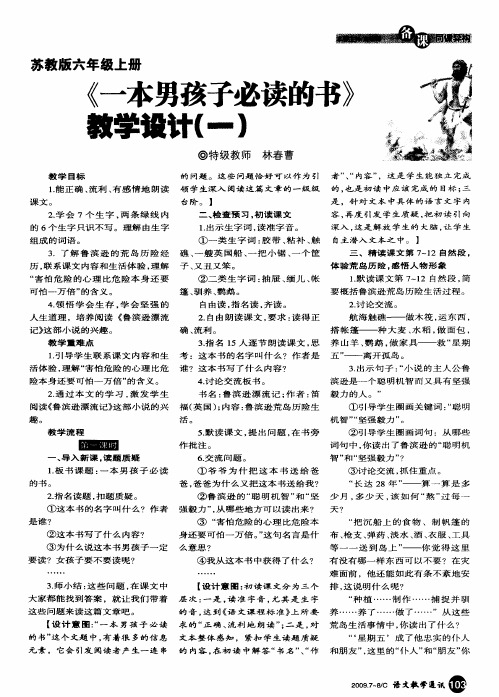 备课 同课异构
苏教版六年级上册
《一本男孩子必读的书》
教学设计(一)
◎特级教师 林春曹
教学目标
1.能正确、流利、有感情地朗读
课文。
2.学会 7 个生字,两条绿线内
的 6 个生字只识不写。理解由生字
组成的词语。
3. 了解鲁滨逊的荒岛历险经
历,联系课文内容和生活体验,理解
“害怕危险的心理比危险本身还要
可怕一万倍”的含义。
4.领悟学会生存,学会坚强的
人生道理,培养阅读《鲁滨逊漂流
记》这部小说的兴趣。
教学重难点
1.引导学生联系课文内容和生
活体验,理解“害怕危险的心理比危
险本身还要可怕一万倍”的含义。
2.通过本文的学习,激发学生
阅读《鲁滨逊漂流记》这部小说的兴
趣。
教学流程
第一课时
一、导入新课,读题质疑
1.板书课题:一本男孩子必读
的书。
2.指名读题,扣题质疑。
①这本书的名字叫什么?作者
是谁?
②这本书写了什么内容?
③为什么说这本书男孩子一定
要读?女孩子要不要读呢?
……
3.师小结:这些问题,在课文中
大家都能找到答案,就让我们带着
这些问题来读这篇文章吧。
【设计意图:“一本男孩子必读
的书”这个文题中,有着很多的信息
元素,它会引发阅读者产生一连串
的问题。这些问题恰好可以作为引
领学生深入阅读这篇文章的一级级
台阶。】
二、检查预习,初读课文
1.出示生字词,读准字音。
①一类生字词:胶带、粘补、触
礁、一艘英国船、一把小锯、一个筐
子、又丑又笨。
②二类生字词:抽屉、缅儿、帐
篷、驯养、鹦鹉。
自由读,指名读,齐读。
2.自由朗读课文,要求:读得正
确、流利。
3.指名 15 人逐节朗读课文,思
考:这本书的名字叫什么?作者是
谁?这本书写了什么内容?
4.讨论交流板书。
书名:鲁滨逊漂流记;作者:笛
福(英国);内容:鲁滨逊荒岛历险生
活。
5.默读课文,提出问题,在书旁
作批注。
6.交流问题。
①爷爷为什把这本书送给爸
爸,爸爸为什么又把这本书送给我?
②鲁滨逊的“聪明机智”和“坚
强毅力”,从哪些地方可以读出来?
③ “害怕危险的心理比危险本
身还要可怕一万倍。”这句名言是什
么意思?
④我从这本书中获得了什么?
……
【设计意图:初读课文分为三个
层次:一是,读准字音,尤其是生字
的音,达到《语文课程标准》上所要
求的“正确、流利地朗读”;二是,对
文本整体感知,紧扣学生读题质疑
的内容,在初读中解答“书名”、“作
者”、“内容”,这是学生能独立完成
的,也是初读中应该完成的目标;三
是,针对文本中具体的语言文字内
容,再度引发学生质疑,把初读引向
深入,这是解放学生的大脑,让学生
自主潜入文本之中。】
三、精读课文第 7~12 自然段,
体验荒岛历险,感悟人物形象
1.默读课文第 7~12 自然段,简
要概括鲁滨逊荒岛历险生活过程。
2.讨论交流。
航海触礁——做木筏,运东西,
搭帐篷——种大麦、水稻,做面包,
养山羊、鹦鹉,做家具——救“星期
五”——离开孤岛。
3.出示句子:“小说的主人公鲁
滨逊是一个聪明机智而又具有坚强
毅力的人。”
①引导学生圈画关键词:“聪明
机智”“坚强毅力”。
②引导学生圈画词句:从哪些
词句中,你读出了鲁滨逊的“聪明机
智”和“坚强毅力”?
③讨论交流,抓住重点。
“长达 28 年”——算一算是多
少月,多少天,该如何“熬”过每一
天?
“把沉船上的食物、制帆篷的
布、枪支、弹药、淡水、酒、衣服、工具
等一一送到岛上”——你觉得这里
有没有哪一样东西可以不要?在灾
难面前,他还能如此有条不紊地安
排,这说明什么呢?
“种植……制作……捕捉并驯
养……养了……做了……”从这些
荒岛生活事情中,你读出了什么?
“‘星期五’成了他忠实的仆人
和朋友”,这里的“仆人”和“朋友”你
2009.7-8/C 语文教学通讯 103